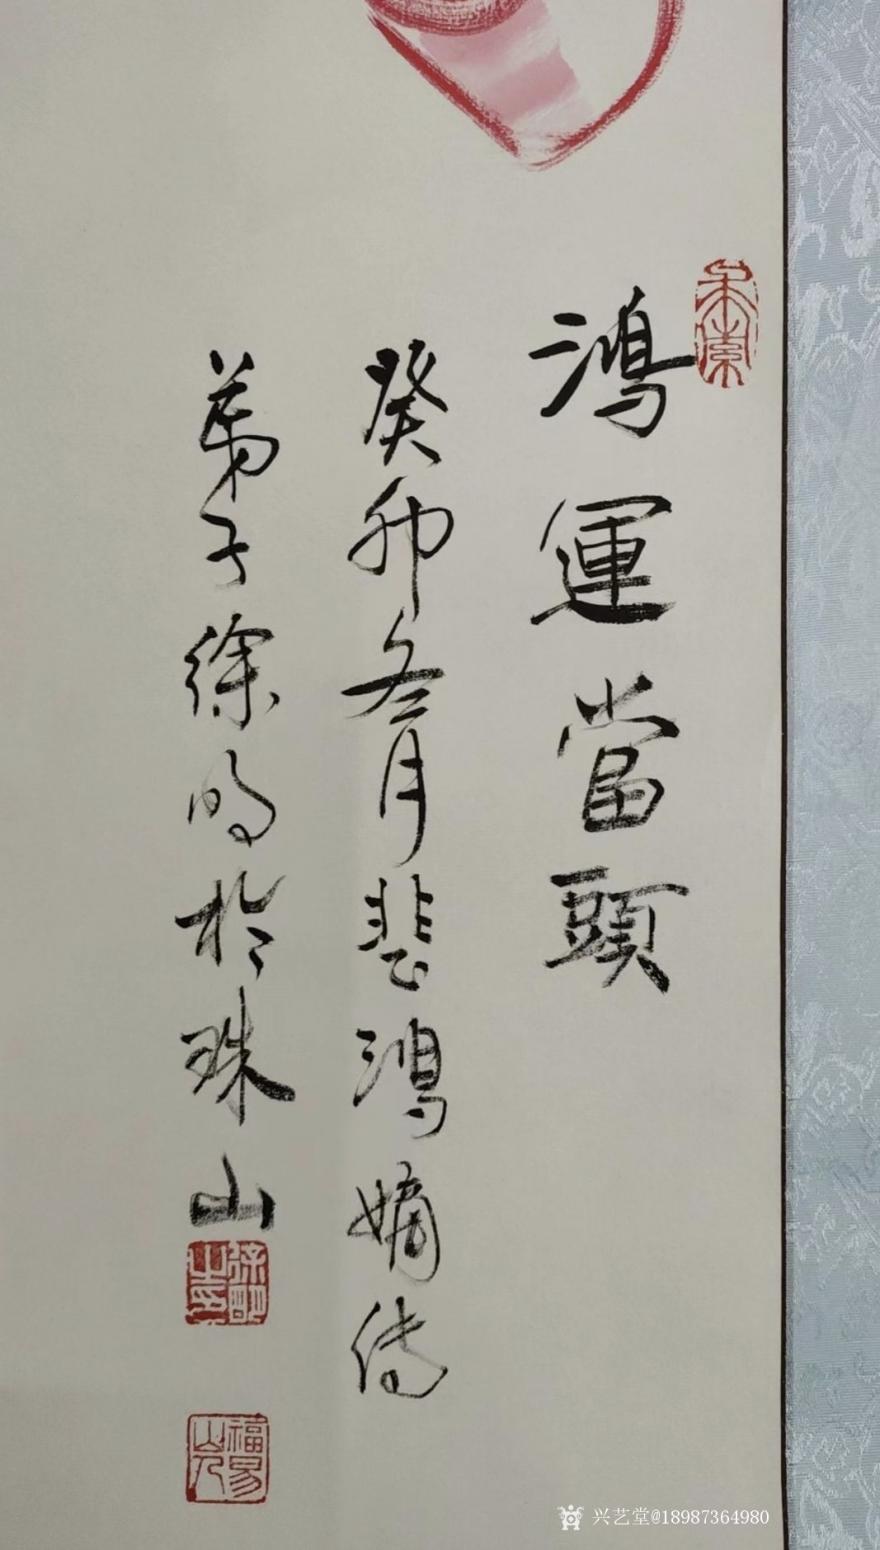 鴻運當頭
癸卯冬月悲鴻嫡传
弟子徐鸣於珠山
兴艺堂@18987364980